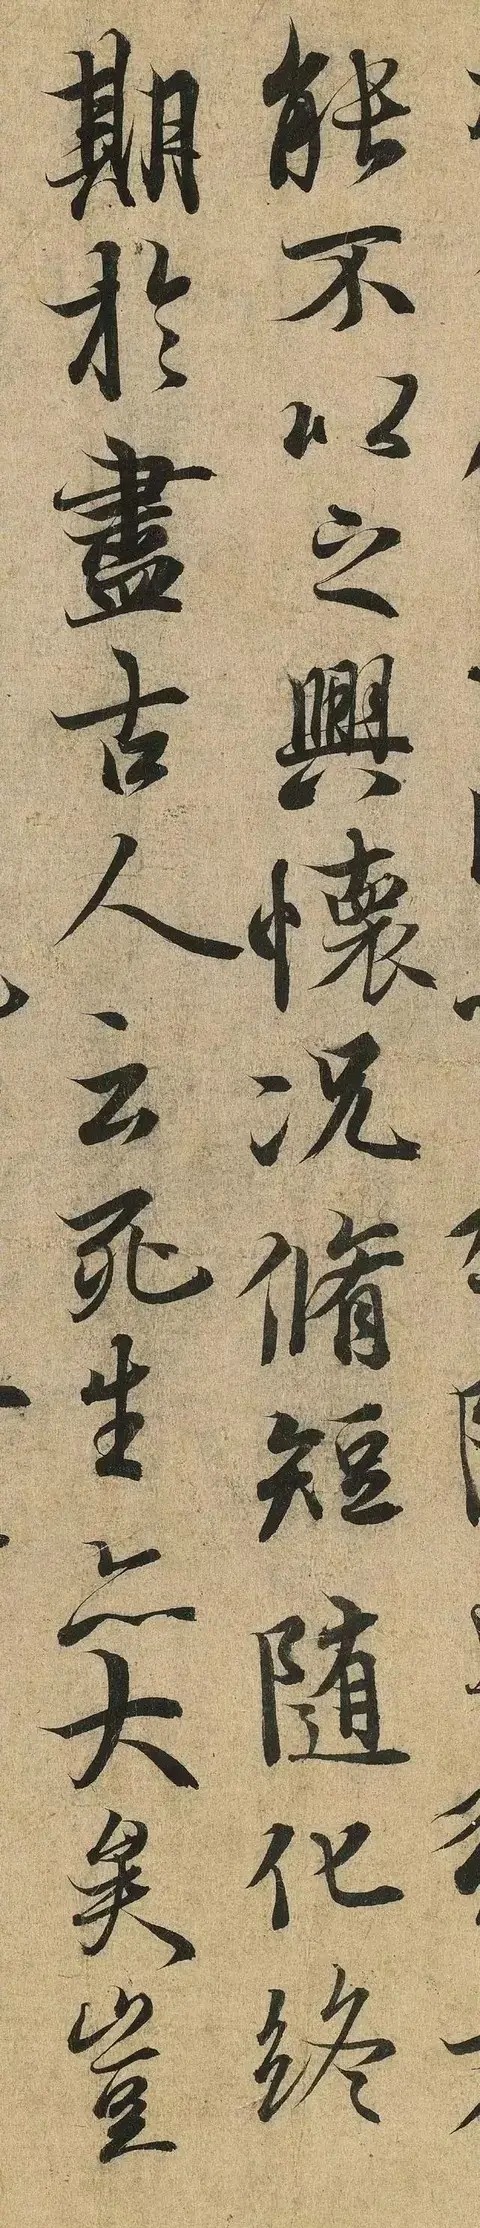 能不以之興懷况脩短随化終
期於盡古人云死生亦大矣豈